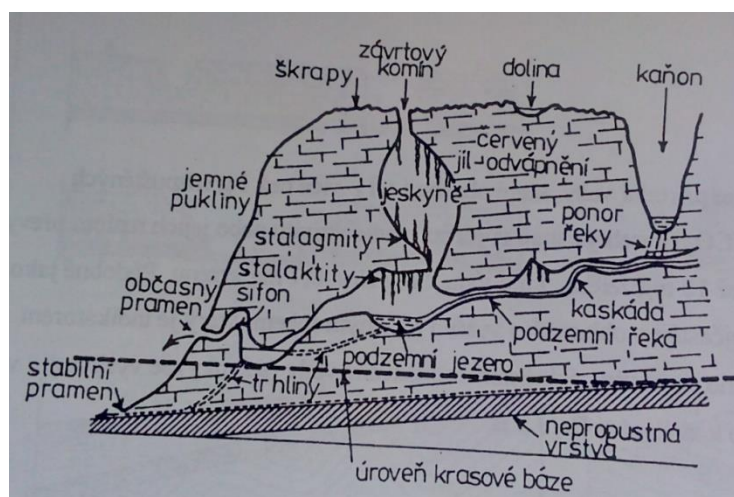 škrapy
závrtový
komín
dolina
kaňon
červený
jíl-odvápnění
jemné
pukliny
jeskyně
ponor
řeky
stalagmity
stalaktity
občasný
pramen
sifon
kaskáda
podzemní řeka
podzemní jezero
stabilní
pramen
trhliny
nepropustná
vrstva
úroveň krasové báze